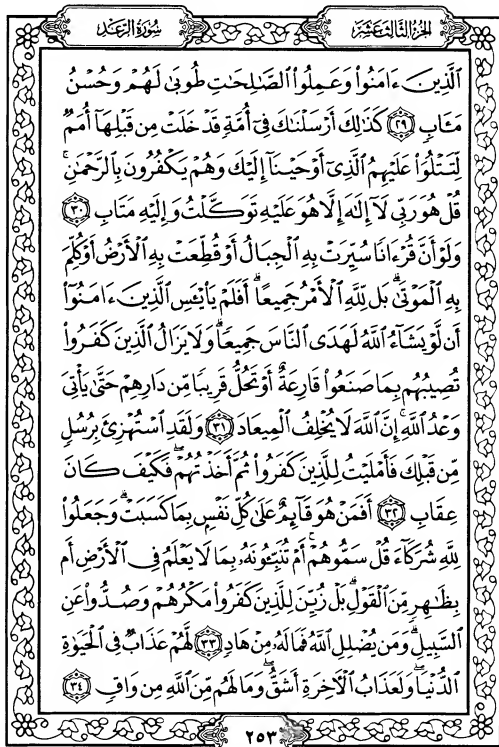 الجزء الثالث عشر
سورة الرعد
ٱلَّذِينَ ءَامَنُوا۟ وَعَمِلُوا۟ ٱلصَّـٰلِحَـٰتِ طُوبَىٰ لَهُمْ وَحُسْنُ
مَـَٔابٍ ﴿٢٩﴾ كَذَٰلِكَ أَرْسَلْنَـٰكَ فِىٓ أُمَّةٍ قَدْ خَلَتْ مِن قَبْلِهَآ أُمَمٌ
لِّتَتْلُوَا۟ عَلَيْهِمُ ٱلَّذِىٓ أَوْحَيْنَآ إِلَيْكَ وَهُمْ يَكْفُرُونَ بِٱلرَّحْمَـٰنِ ۚ
قُلْ هُوَ رَبِّى لَآ إِلَـٰهَ إِلَّا هُوَ عَلَيْهِ تَوَكَّلْتُ وَإِلَيْهِ مَتَابِ ﴿٣٠﴾
وَلَوْ أَنَّ قُرْءَانًا سُيِّرَتْ بِهِ ٱلْجِبَالُ أَوْ قُطِّعَتْ بِهِ ٱلْأَرْضُ أَوْ كُلِّمَ
بِهِ ٱلْمَوْتَىٰ ۗ بَل لِّلَّهِ ٱلْأَمْرُ جَمِيعًا ۗ أَفَلَمْ يَا۟يْـَٔسِ ٱلَّذِينَ ءَامَنُوٓا۟
أَن لَّوْ يَشَآءُ ٱللَّهُ لَهَدَى ٱلنَّاسَ جَمِيعًا ۗ وَلَا يَزَالُ ٱلَّذِينَ كَفَرُوا۟
تُصِيبُهُم بِمَا صَنَعُوا۟ قَارِعَةٌ أَوْ تَحُلُّ قَرِيبًا مِّن دَارِهِمْ حَتَّىٰ يَأْتِىَ
وَعْدُ ٱللَّهِ ۚ إِنَّ ٱللَّهَ لَا يُخْلِفُ ٱلْمِيعَادَ ﴿٣١﴾ وَلَقَدِ ٱسْتُهْزِئَ بِرُسُلٍ
مِّن قَبْلِكَ فَأَمْلَيْتُ لِلَّذِينَ كَفَرُوا۟ ثُمَّ أَخَذْتُهُمْ ۖ فَكَيْفَ كَانَ
عِقَابِ ﴿٣٢﴾ أَفَمَنْ هُوَ قَآئِمٌ عَلَىٰ كُلِّ نَفْسٍۭ بِمَا كَسَبَتْ ۗ وَجَعَلُوا۟
لِلَّهِ شُرَكَآءَ قُلْ سَمُّوهُمْ ۚ أَمْ تُنَبِّـُٔونَهُۥ بِمَا لَا يَعْلَمُ فِى ٱلْأَرْضِ أَم
بِظَـٰهِرٍ مِّنَ ٱلْقَوْلِ ۗ بَلْ زُيِّنَ لِلَّذِينَ كَفَرُوا۟ مَكْرُهُمْ وَصُدُّوا۟ عَنِ
ٱلسَّبِيلِ ۗ وَمَن يُضْلِلِ ٱللَّهُ فَمَا لَهُۥ مِنْ هَادٍ ﴿٣٣﴾ لَّهُمْ عَذَابٌ فِى ٱلْحَيَوٰةِ
ٱلدُّنْيَا ۖ وَلَعَذَابُ ٱلْـَٔاخِرَةِ أَشَقُّ ۖ وَمَا لَهُم مِّنَ ٱللَّهِ مِن وَاقٍ ﴿٣٤﴾
٢٥٣